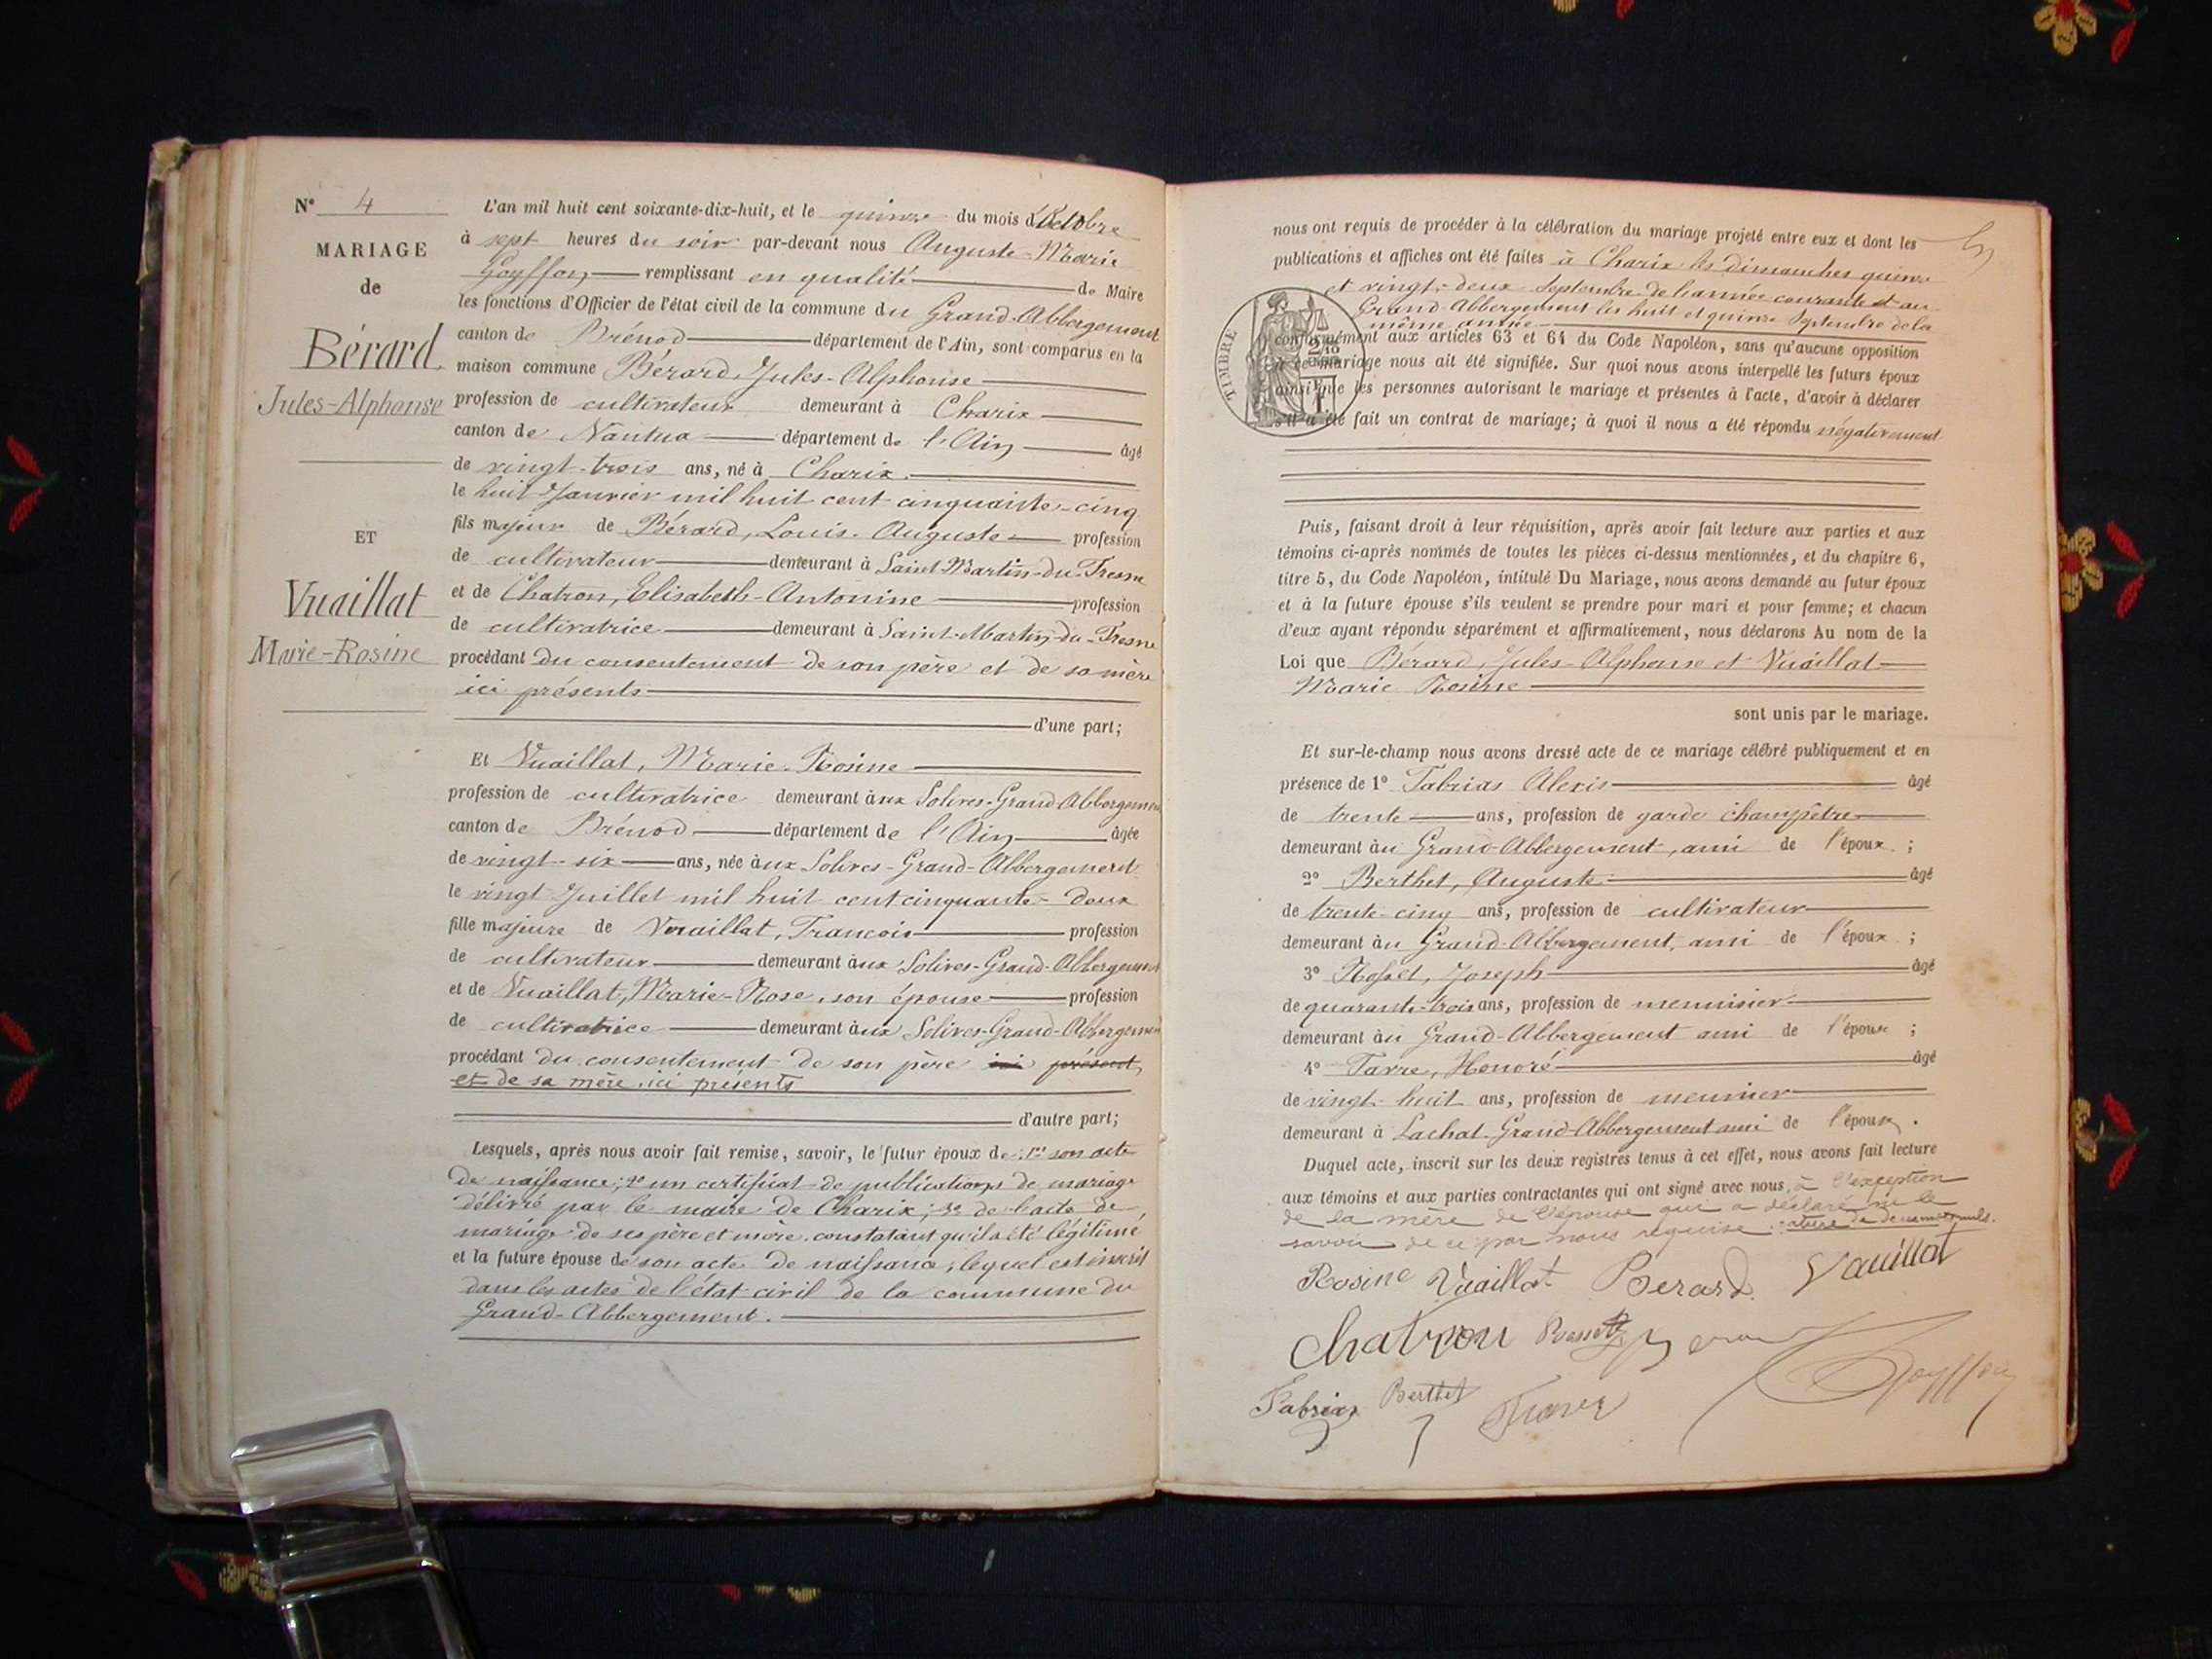 N° 4
MARIAGE
de
Bérard
Jules-Alphonse
ET
Vuaillat
Marie-Rosine
L'an mil huit cent soixante-dix-huit, et le quinze du mois d'Octobre
à sept heures du soir par-devant nous Auguste-Marie
Goyffon remplissant en qualité de Maire
les fonctions d'Officier de l'état civil de la commune du Grand-Abbergement
canton de Brénod département de l'Ain, sont comparus en la
maison commune Bérard, Jules-Alphonse
profession de cultivateur demeurant à Charix
canton de Nantua département de l'Ain âgé
de vingt-trois ans, né à Charix
le huit Janvier mil huit cent cinquante-cinq
fils majeur de Bérard, Louis-Auguste profession
de cultivateur demeurant à Saint-Martin-du-Fresne
et de Chatron, Elisabeth-Antonine profession
de cultivatrice demeurant à Saint-Martin-du-Fresne
procédant du consentement de son père et de sa mère
ici présents
d'une part;
Et Vuaillat, Marie-Rosine
profession de cultivatrice demeurant aux Solives-Grand-Abbergement
canton de Brénod département de l'Ain âgée
de vingt-six ans, née aux Solives-Grand-Abbergement
le vingt Juillet mil huit cent cinquante-deux
fille majeure de Vuaillat, Francois profession
de cultivateur demeurant aux Solives-Grand-Abbergement
et de Vuaillat, Marie-Rose, son épouse profession
de cultivatrice demeurant aux Solives-Grand-Abbergement
procédant du consentement de son père ici présent
et de sa mère, ici présents
d'autre part;
Lesquels, après nous avoir fait remise, savoir, le futur époux de: 1° son acte
de naissance; 2° un certificat de publications de mariage
délivré par le maire de Charix; 3° de l'acte de
mariage de ses père et mère constatant qu'il a été légitimé
et la future épouse de son acte de naissance, lequel est inscrit
dans les actes de l'état civil de la commune du
Grand-Abbergement.
nous ont requis de procéder à la célébration du mariage projeté entre eux et dont les
publications et affiches ont été faites à Charix les dimanches quinze
et vingt-deux Septembre de l'année courante et au
Grand-Abbergement les huit et quinze Septembre de la
même année
TIMBRE
conformément aux articles 63 et 64 du Code Napoléon, sans qu'aucune opposition
à ce mariage nous ait été signifiée. Sur quoi nous avons interpellé les futurs époux
ainsi que les personnes autorisant le mariage et présentes à l'acte, d'avoir à déclarer
s'il a été fait un contrat de mariage; à quoi il nous a été répondu négativement
Puis, faisant droit à leur réquisition, après avoir fait lecture aux parties et aux
témoins ci-après nommés de toutes les pièces ci-dessus mentionnées, et du chapitre 6,
titre 5, du Code Napoléon, intitulé Du Mariage, nous avons demandé au futur époux
et à la future épouse s'ils veulent se prendre pour mari et pour femme; et chacun
d'eux ayant répondu séparément et affirmativement, nous déclarons Au nom de la
Loi que Bérard, Jules-Alphonse et Vuaillat
Marie Rosine
sont unis par le mariage.
Et sur-le-champ nous avons dressé acte de ce mariage célébré publiquement et en
présence de 1° Fabrias Alexis âgé
de trente ans, profession de garde champêtre
demeurant au Grand-Abbergement, ami de l'époux ;
2° Berthet, Auguste âgé
de trente-cinq ans, profession de cultivateur
demeurant au Grand-Abbergement, ami de l'époux ;
3° Rosset, Joseph âgé
de quarante-trois ans, profession de menuisier
demeurant au Grand-Abbergement ami de l'époux ;
4° Favre, Honoré âgé
de vingt-huit ans, profession de meunier
demeurant à Lachat-Grand-Abbergement ami de l'époux.
Duquel acte, inscrit sur les deux registres tenus à cet effet, nous avons fait lecture
aux témoins et aux parties contractantes qui ont signé avec nous, à l'exception
de la mère de l'épouse qui a déclaré ne le
savoir de ce par nous requise.
Rosine Vuaillat Berard Vauillat
Chatron Rosset
Goyffon
Fabrias Berthet Favre